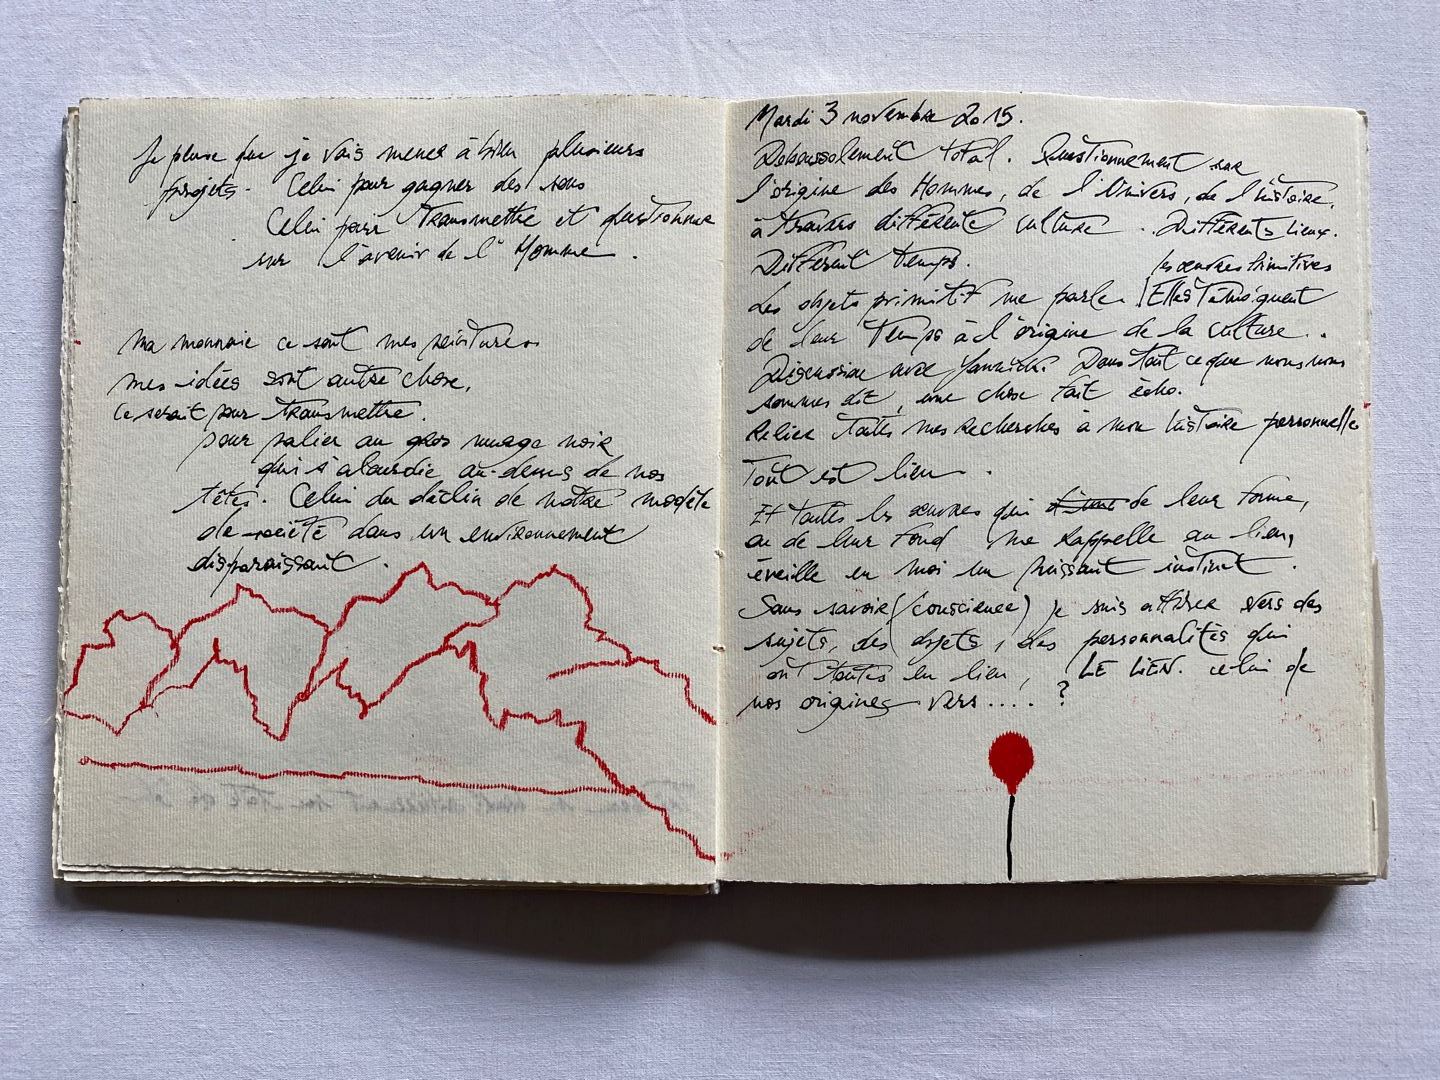 Je pense que je vais mener à bien plusieurs
projets. Celui pour gagner des sous
Celui pour transmettre et questionner
sur l'avenir de l'Homme.
ma monnaie ce sont mes peintures.
mes idées sont autre chose.
Ce serait pour transmettre.
pour palier au gros nuage noir
qui s'alourdie au-dessus de nos
têtes. Celui du déclin de notre modèle
de société dans un environnement
disparaissant.
Mardi 3 novembre 2015.
Deboussolement total. Questionnement sur
l'origine des Hommes, de l'Univers, de l'histoire.
à travers différente culture.. Différents lieux.
Différent temps.
les oeuvres primitives
Les objets primitif me parle. Elles témoignent
de leur temps à l'origine de la culture..
Discussion avec Yannick. Dans tout ce que nous nous
sommes dit, une chose fait écho.
Relier toutes mes recherches à mon histoire personnelle
Tout est lien.
Et toutes les oeuvres qui de leur forme,
ou de leur fond me rappelle au lien,
éveille en moi un puissant instinct.
Sans savoir (/conscience) je suis attirée vers des
sujets, des objets, des personnalités qui
ont toutes en lien, LE LIEN. celui de
nos origines vers.... ?